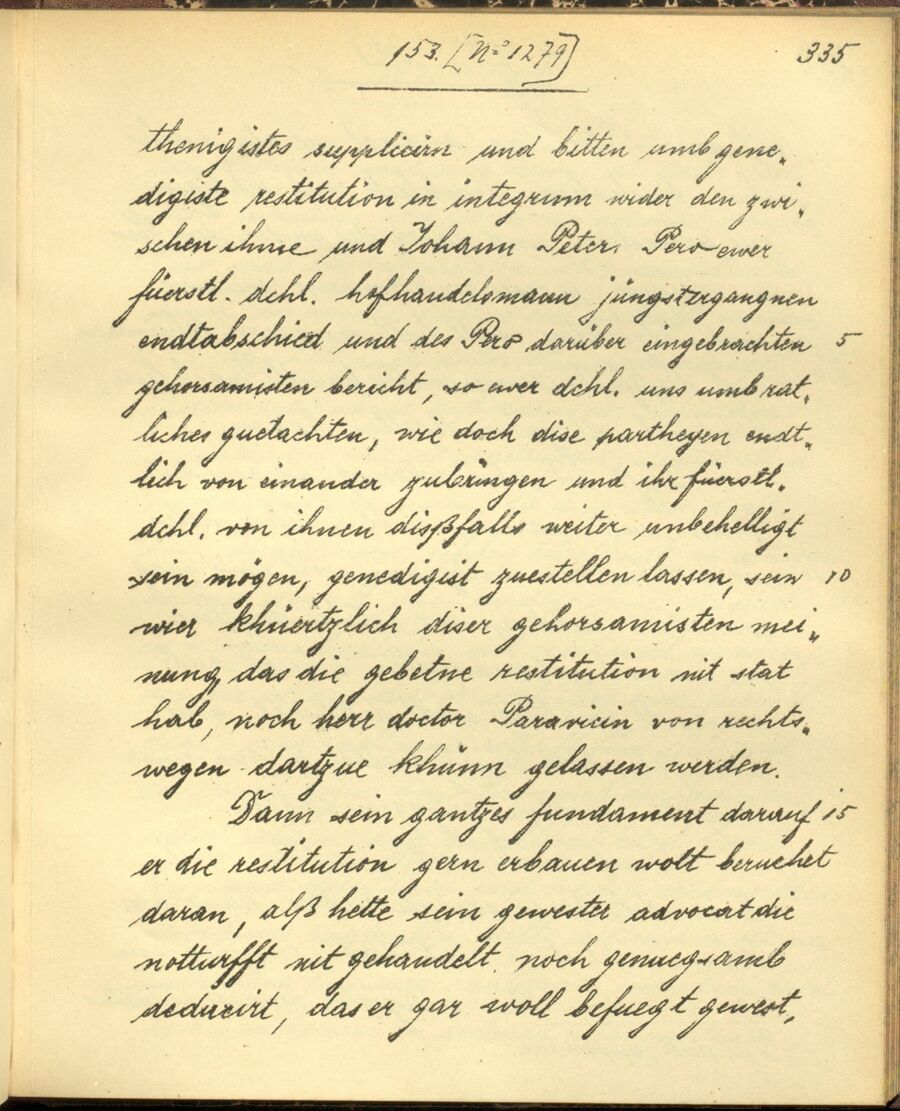 153. [Nº 1279]
335
thenigistes supplicirn und bitten umb gene„
digiste restitution in integrum wider den zwi„
schen ihme und Johann Peter Pero ewer
füerstl. dchl. hofhandelsmann jüngstergangnen
endtabschied und des Pero darüber eingebrachten 5
gehorsamisten bericht, so ewer dchl. uns umb rat„
liches guetachten, wie doch dise partheyen endt„
lich von einander zubringen und ihr füerstl.
dchl. von ihnen dißfalls weiter unbehelligt
sein mögen, genedigist zuestellen lassen, sein 10
wier khüertzlich diser gehorsamisten mei„
nung, das die gebetne restitution nit stat
hab, noch herr doctor Paravicin von rechts„
wegen dartzue khünn gelassen werden.
Dann sein gantzes fundament darauf 15
er die restitution gern erbauen wolt beruehet
daran, alß hette sein gewester advocat die
notturfft nit gehandelt noch genuegsamb
deducirt, das er gar woll befuegt gewest,